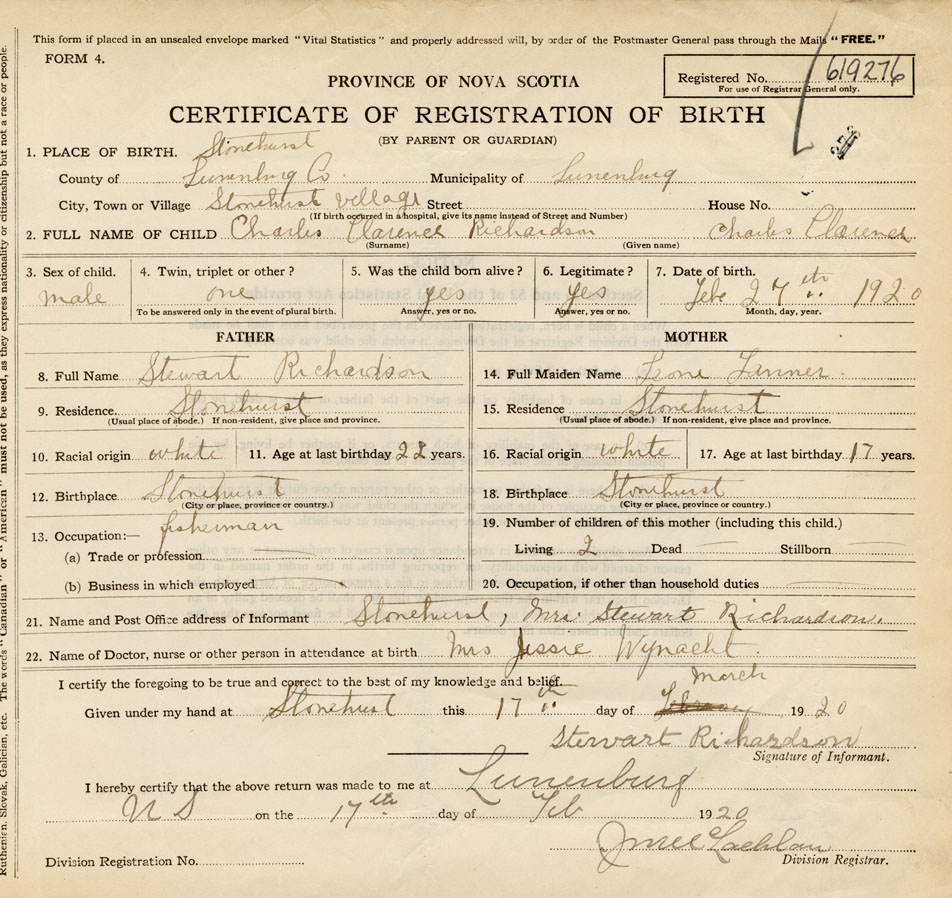 This form if placed in an unsealed envelope marked "Vital Statistics" and properly addressed will, by order of the Postmaster General pass through the Mails "FREE."
FORM 4.
Registered No. 619276
For use of Registrar General only.
PROVINCE OF NOVA SCOTIA
CERTIFICATE OF REGISTRATION OF BIRTH
(BY PARENT OR GUARDIAN)
1. PLACE OF BIRTH. Stonehurst
County of Lunenburg Co. Municipality of Lunenburg
City, Town or Village Stonehurst village Street House No.
(If birth occurred in a hospital, give its name instead of Street and Number)
2. FULL NAME OF CHILD Charles Clarence Richardson Charles Clarence
(Surname) (Given name)
3. Sex of child. 4. Twin, triplet or other? 5. Was the child born alive? 6. Legitimate? 7. Date of birth.
male one yes yes Febe 27th 1920
To be answered only in the event of plural birth. Answer, yes or no. Answer, yes or no. Month, day, year.
FATHER
8. Full Name Stewart Richardson
9. Residence. Stonehurst
(Usual place of abode.) If non-resident, give place and province.
10. Racial origin white 11. Age at last birthday 22 years.
12. Birthplace Stonehurst
(City or place, province or country.)
13. Occupation:— fisherman
(a) Trade or profession
(b) Business in which employed
MOTHER
14. Full Maiden Name
15. Residence Stonehurst
(Usual place of abode.) If non-resident, give place and province.
16. Racial origin white 17. Age at last birthday 17 years.
18. Birthplace Stonehurst
(City or place, province or country.)
19. Number of children of this mother (including this child.)
Living 2 Dead — Stillborn —
20. Occupation, if other than household duties
21. Name and Post Office address of Informant Stonehurst, Mrs. Stewart Richardson.
22. Name of Doctor, nurse or other person in attendance at birth Mrs Jessie Wynacht
I certify the foregoing to be true and correct to the best of my knowledge and belief.
Given under my hand at Stonehurst this 17th day of March 1920
Stewart Richardson
Signature of Informant.
I hereby certify that the above return was made to me at Lunenburg
N S on the 17th day of Feb 1920
Division Registration No. Division Registrar.
Ruthenian, Slovak, Galician, etc. The words "Canadian" or "American" must not be used, as they express nationality or citizenship but not a race or people.